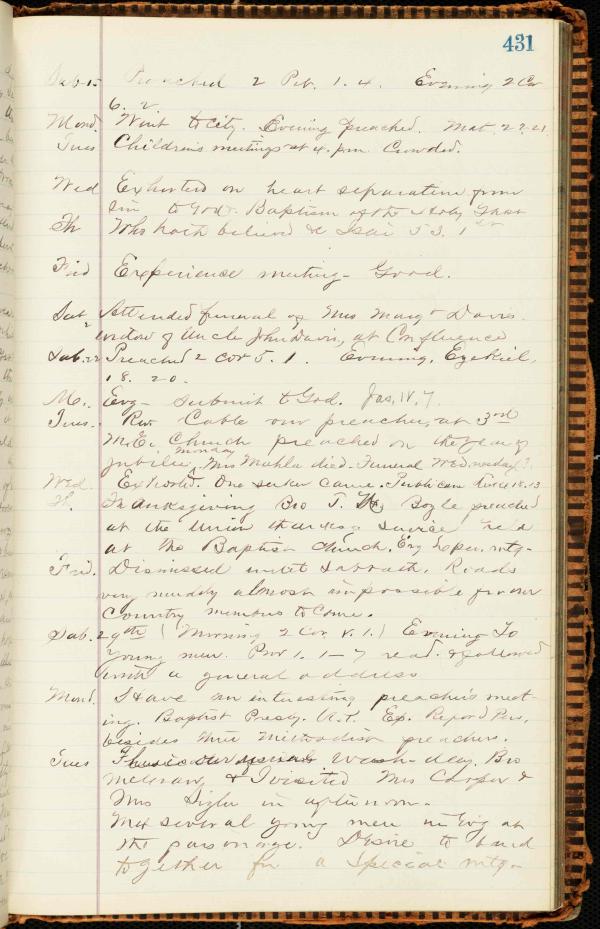 431
Sab. 15 Preached 2 Pet. 1. 4. Evening 2 Cor
6. 2.
Mond. Went to city. Evening preached. Mat. 22.21
Tues Children's meetings at 4. pm. Crowded.
Wed Exhorted on heart separation from
sin to God & Baptism of the Holy Ghost
Th Who hath believed & Isai 53. 1st
Frid Experience meeting - Good.
Sat Attended funeral of Mrs Margt Davis
widow of Uncle John Davis, at Confluence
Sab. 22 Preached 2 Cor 5. 1. Evening, Ezekiel,
18. 20.
M. Evg - Submit to God. Jas. IV. 7.
Tues. Rev. Cable our preacher, at 3rd
M.E. Church preached on the year of
Monday
jubilee, Mrs Mahla died. Funeral Wednesday
Wed. Exhorted. One seeker came. Publican Luke 18.13
Th. Thanksgiving Bro T. Boyle preached
at the Union thanksg service held
at the Baptist Church. Evg Exper. mtg -
Frid. Dismissed until Sabbath. Roads
very muddy almost impossible for our
Country members to come.
Sab. 29th (Morning 2 Cor. V. 1.) Evening To
young men. Prov 1. 1-7 read. & followed
with a general address
Mond. Have an interesting preacher's meet-
ing. Baptist Presby. Ep. Reford Pres,
besides three Methodist preachers.
Tues wash-day. Bro
McCrary & I visited Mrs Cooper &
Mrs in afternoon -
Met several young men in Evg at
the parsonage. Desire to band
together for a special mtg -